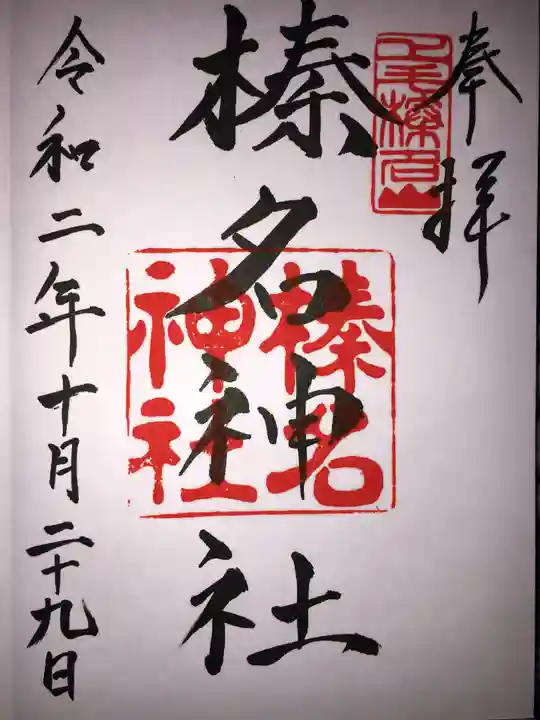 奉拝
上毛榛名山
榛名神社
榛名
神社
令和二年十月二十九日